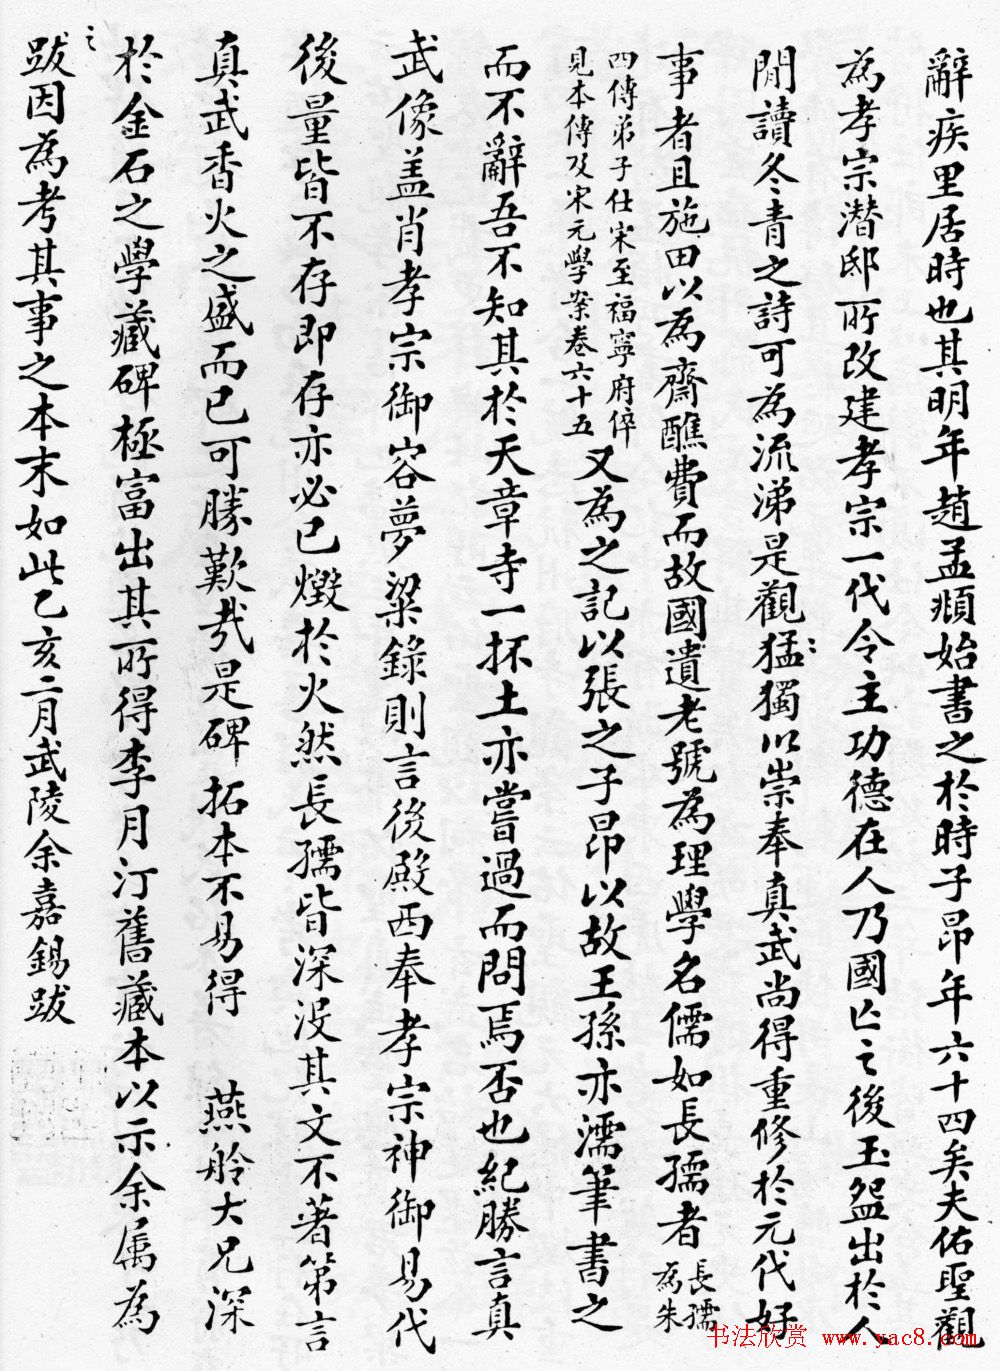 辭疾里居時也其明年趙孟頫始書之於時子昂年六十四矣夫佑聖觀
為孝宗潛邸所改建孝宗一代令主功德在人乃國亡之後玉盌出於人
間讀冬青之詩可為流涕是觀猛獨以崇奉真武尚得重修於元代好
事者且施田以為齋醮費而故國遺老號為理學名儒如長孺者
長孺
為朱
四傳弟子仕宋至福寧府倅
見本傳及宋元學案卷六十五
又為之記以張之子昂以故王孫亦濡筆書之
而不辭吾不知其於天章寺一抔土亦嘗過而問焉否也紀勝言真
武像蓋肖孝宗御容夢粱錄則言後殿西奉孝宗神御易代
後量皆不存即存亦必已燬於火然長孺皆深沒其文不著第言
真武香火之盛而已可勝歎哉是碑拓本不易得 燕舲大兄深
於金石之學藏碑極富出其所得李月汀舊藏本以示余属為
之
跋因為考其事之本末如此乙亥二月武陵余嘉錫跋
书法欣赏 www.yac8.com